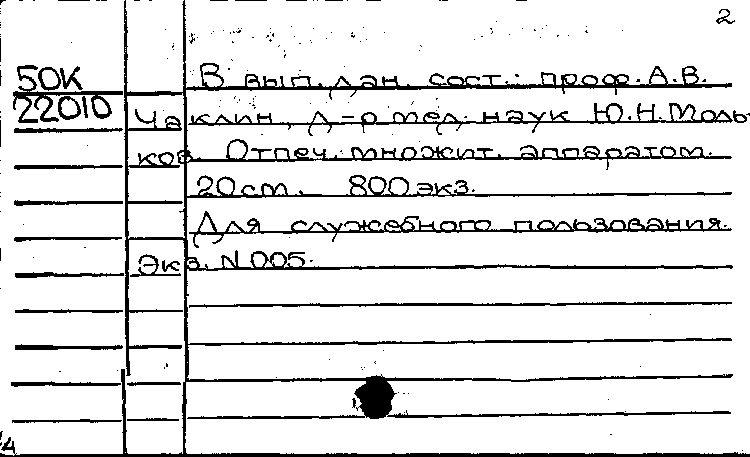 2
50К В вып. дан. сост.: проф. А.В.
22010 Чаклин, д-р мед. наук Ю.Н. Моль-
ков. Отпеч. множит. аппаратом.
20 см. 800 экз.
Для служебного пользования.
Экз. N 005.
4